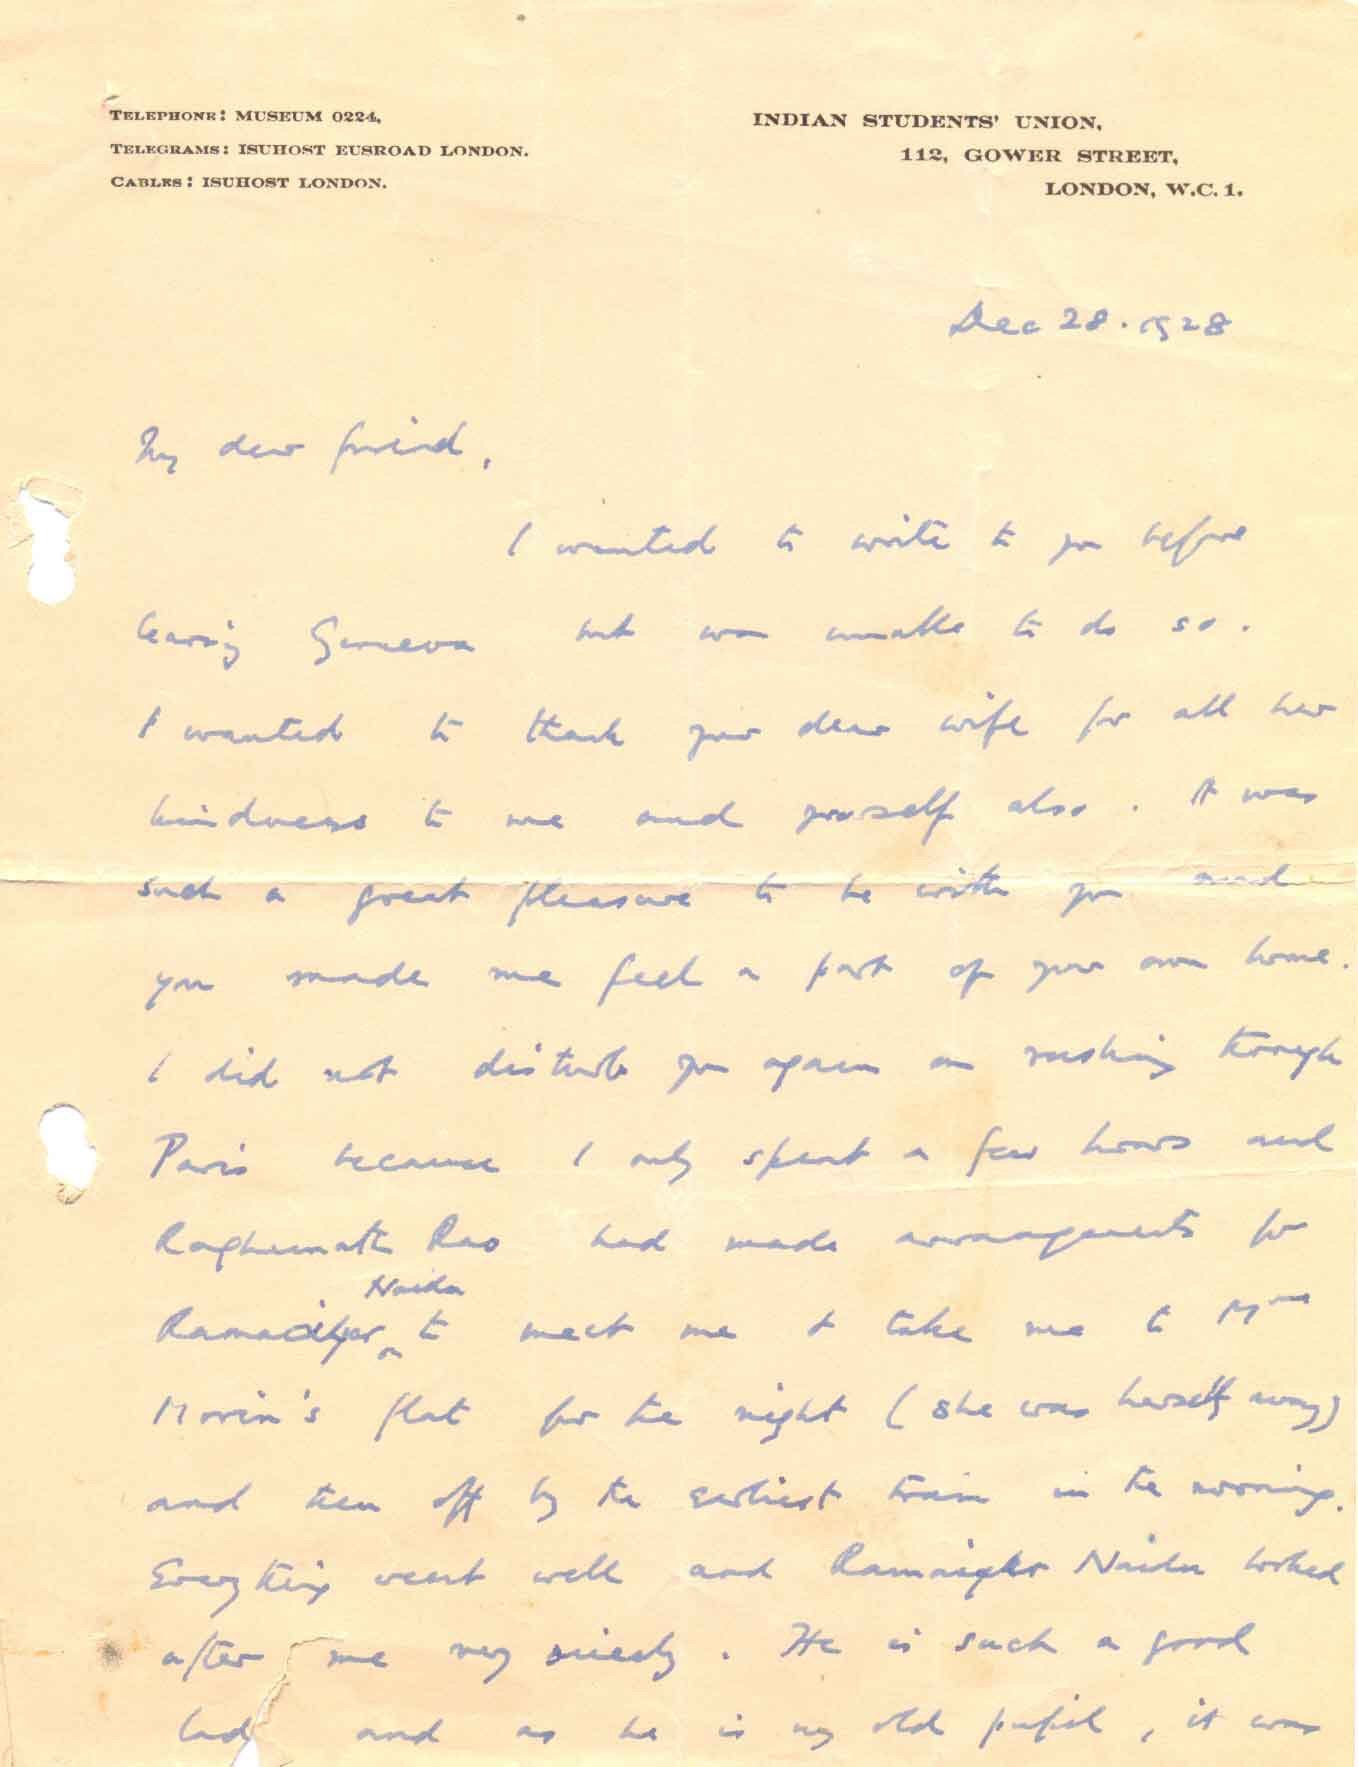 TELEPHONE: MUSEUM 0224,
TELEGRAMS: ISUHOST EUSROAD LONDON.
CABLES: ISUHOST LONDON.
INDIAN STUDENTS' UNION,
112, GOWER STREET,
LONDON, W.C.1.
Dec 28. 1928
My dear friend,
I wanted to write to you before
leaving Geneva but was unable to do so.
I wanted to thank your dear wife for all her
kindness to me and yourself also. It was
such a great pleasure to be with you and
you made me feel a part of your own home.
I did not disturb you again on rushing through
Paris because I only spent a few hours and
Raghunath Rao had made arrangements for
Naidu
to meet me & take me to Mme
Morin's flat for the night (she was herself away)
and then off by the earliest train in the morning.
Everything went well and Naidu looked
after me very nicely. He is such a good
lad and as he is my old pupil, it was